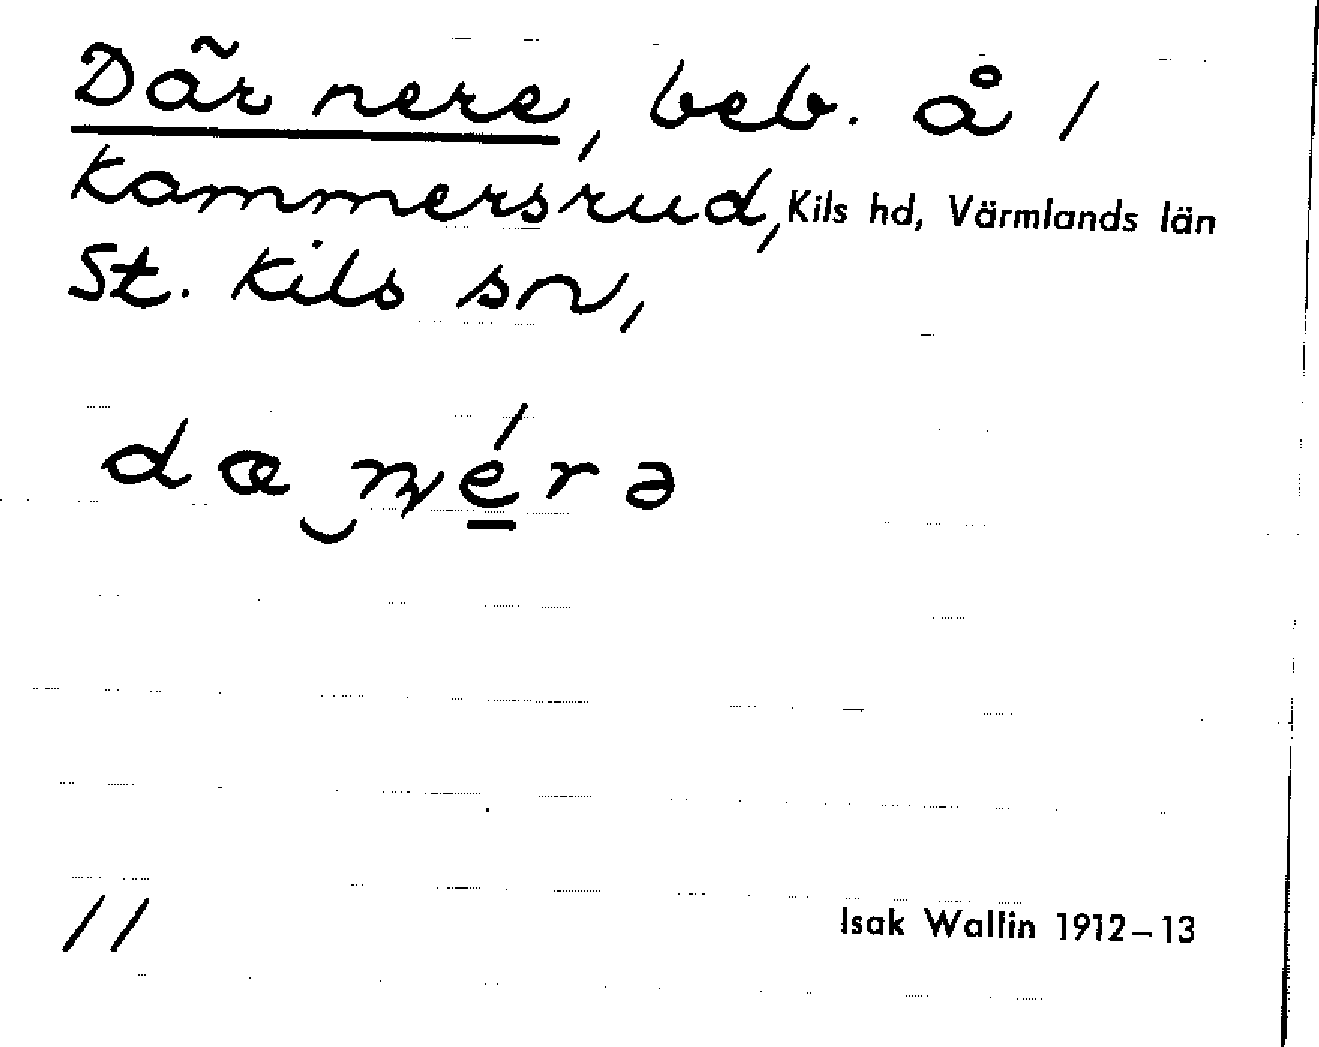 Där nere, beb. å /
Kammersrud, Kils hd, Värmlands län
St. Kils sn,
dæ‿nér ə
//
Isak Wallin 1912–13